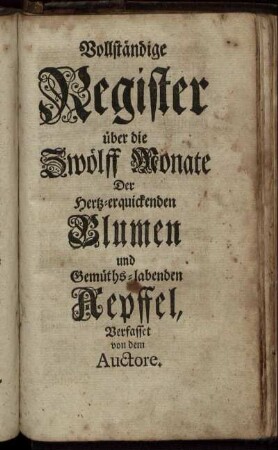 Vollständige
Register
über die
Zwölff Monate
Der
Hertz-erquickenden
Blumen
und
Gemüths-labenden
Aepffel,
Verfasset
von dem
Auctore.